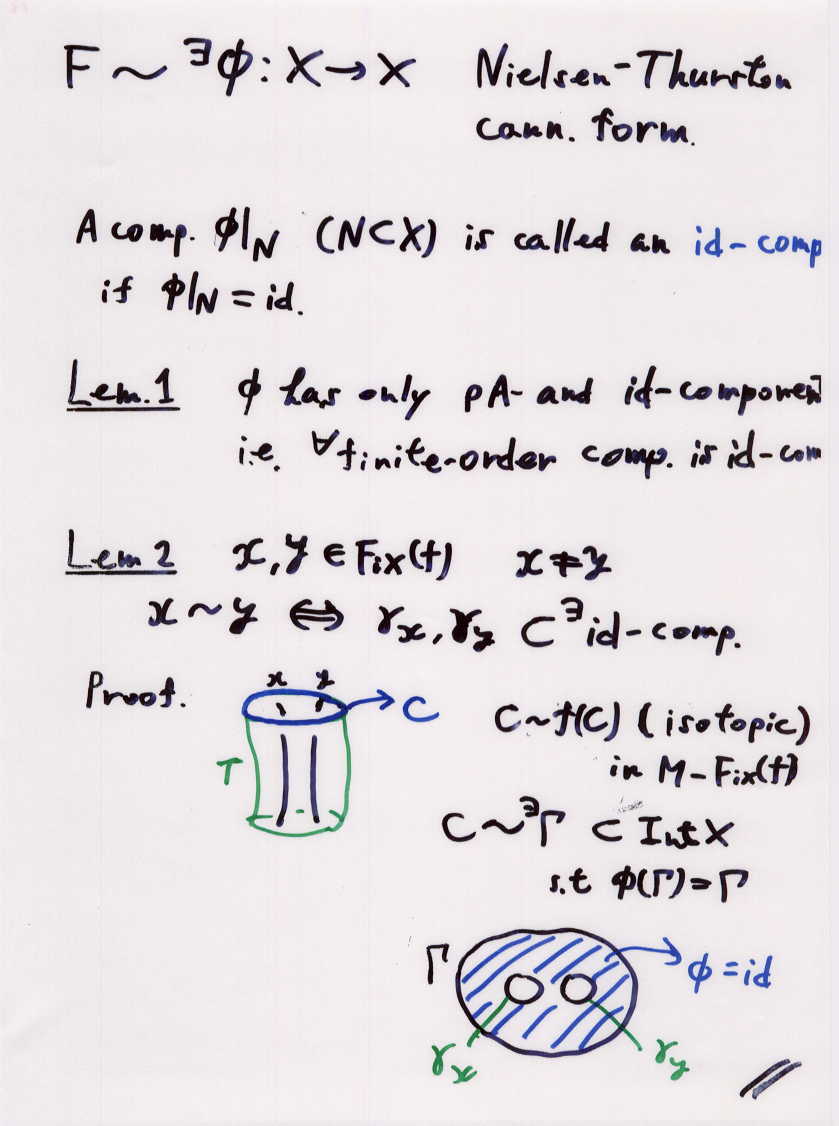 F ∼ ∃φ : X → X Nielsen-Thurston
cann. form.
A comp. φ|N (N⊂X) is called an id-comp
if φ|N = id.
Lem.1 φ has only pA- and id-componen
i.e. ∀finite-order comp. is id-com
Lem 2 x, y ∈ Fix(f) x ≠ y
x ∼ y ⇔ γx, γy ⊂ ∃id-comp.
Proof.
x y
C
T
C ∼ f(C) (isotopic)
in M - Fix(f)
C ∼ ∃Γ ⊂ Int X
s.t φ(Γ) = Γ
Γ
φ = id
γx γy